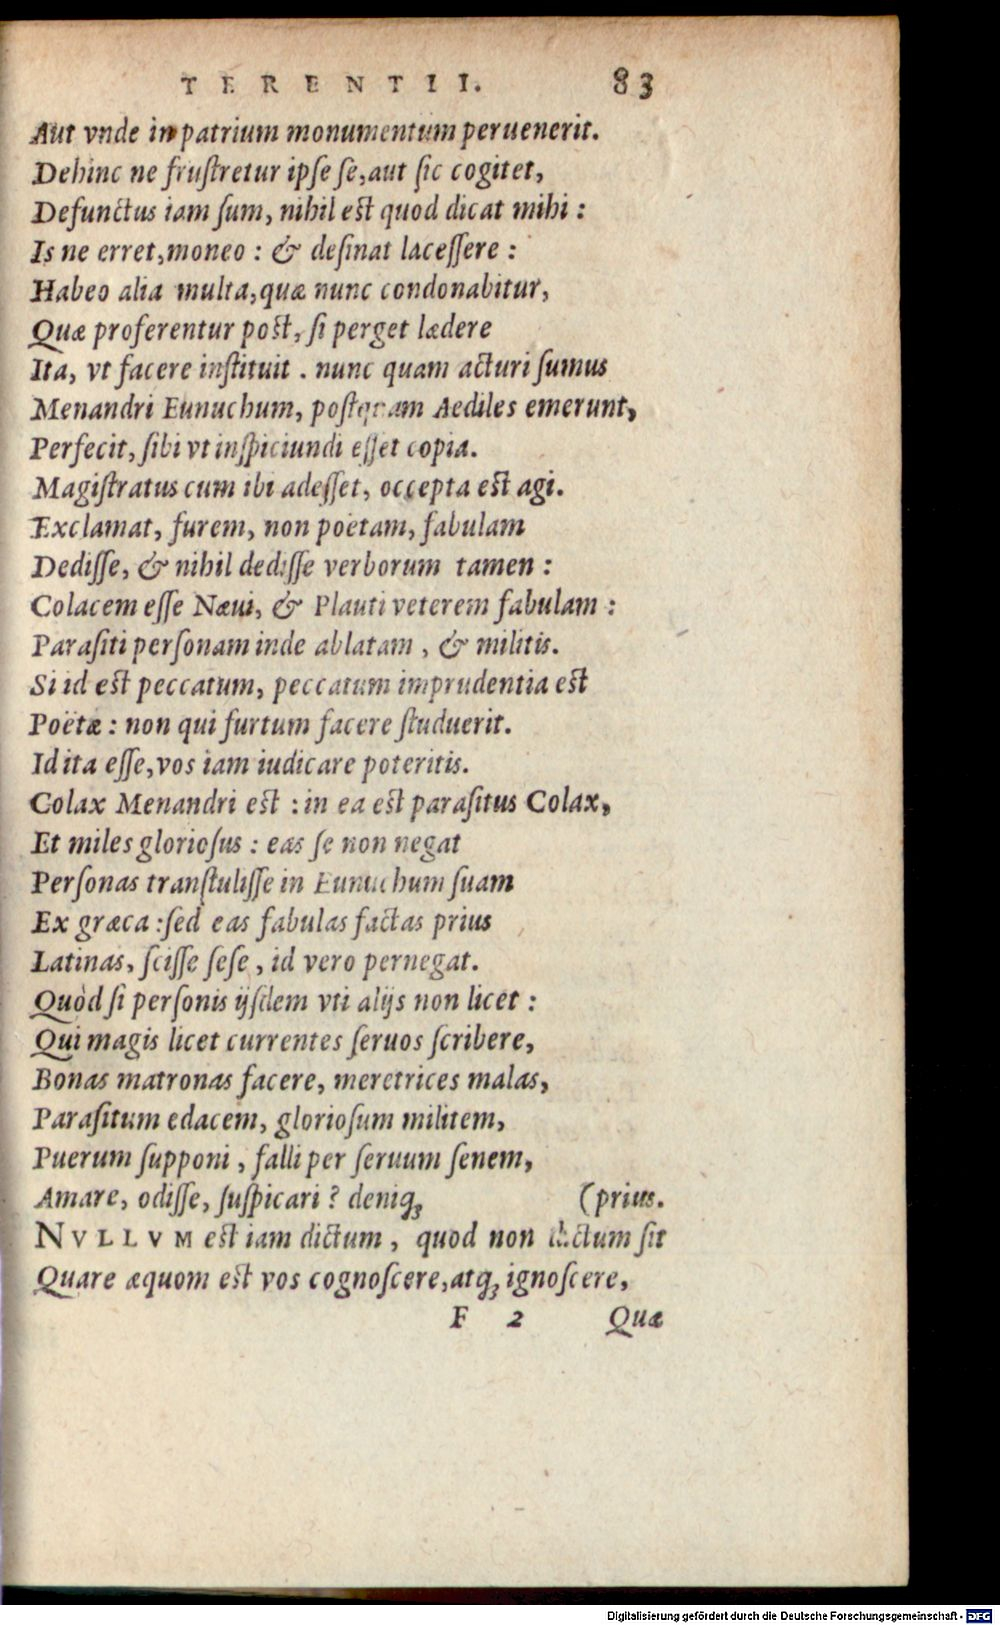 TERENTII. 83
Aut vnde in patrium monumentum peruenerit.
Dehinc ne fruſtretur ipſe ſe, aut ſic cogitet,
Defunctus iam ſum, nihil eſt quod dicat mihi :
Is ne erret, moneo : & deſinat laceſſere :
Habeo alia multa, quæ nunc condonabitur,
Quæ proferentur poſt, ſi perget lædere
Ita, vt facere inſtituit . nunc quam acturi ſumus
Menandri Eunuchum, poſtquam Aediles emerunt,
Perfecit, ſibi vt inſpiciundi eſſet copia.
Magiſtratus cum ibi adeſſet, occepta eſt agi.
Exclamat, furem, non poëtam, fabulam
Dediſſe, & nihil dediſſe verborum tamen :
Colacem eſſe Næui, & Plauti veterem fabulam :
Paraſiti perſonam inde ablatam , & militis.
Si id eſt peccatum, peccatum imprudentia eſt
Poëtæ : non qui furtum facere ſtuduerit.
Id ita eſſe, vos iam iudicare poteritis.
Colax Menandri eſt : in ea eſt paraſitus Colax,
Et miles glorioſus : eas ſe non negat
Perſonas tranſtuliſſe in Eunuchum ſuam
Ex græca : ſed eas fabulas factas prius
Latinas, ſciſſe ſeſe , id vero pernegat.
Quòd ſi perſonis ijſdem vti alijs non licet :
Qui magis licet currentes ſeruos ſcribere,
Bonas matronas facere, meretrices malas,
Paraſitum edacem, glorioſum militem,
Puerum ſupponi , falli per ſeruum ſenem,
Amare, odiſſe, ſuſpicari ? deniq; (prius.
NVLLVM eſt iam dictum , quod non dictum ſit
Quare æquom eſt vos cognoſcere, atq; ignoſcere,
F 2 Quæ
Digitalisierung gefördert durch die Deutsche Forschungsgemeinschaft - DFG